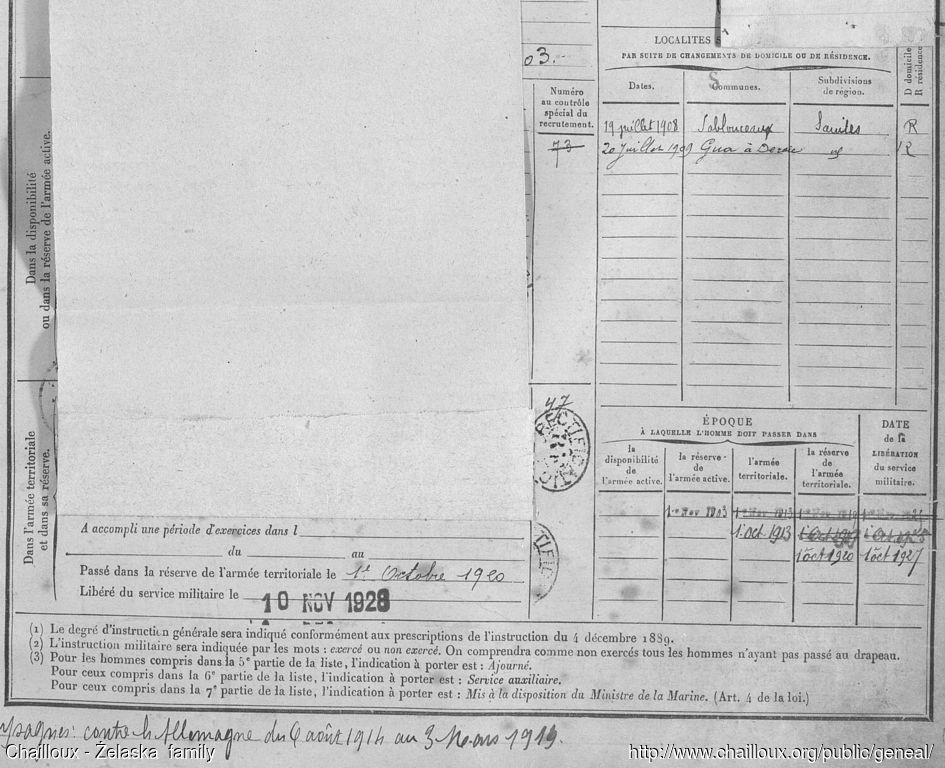 LOCALITES
PAR SUITE DE CHANGEMENTS DE DOMICILE OU DE RÉSIDENCE.
D domicile
R résidence
03.
Dates.
Communes.
Subdivisions
de région.
Numéro
au contrôle
spécial du
recrutement.
73
19 juillet 1908 Sablonceaux Saintes R
20 Juillet 1909 Gua à Dercie R
Dans la disponibilité
ou dans la réserve de l'armée active.
47
RECTIFICATION
ÉPOQUE
À LAQUELLE L'HOMME DOIT PASSER DANS
la
disponibilité
de
l'armée active.
la réserve
de
l'armée active.
l'armée
territoriale.
la réserve
de
l'armée
territoriale.
DATE
de la
LIBÉRATION
du service
militaire.
1er Nov 1903 1er Nov 1913 1er Nov 1919
1 oct 1913 1 Oct 1919
1 oct 1920 1 oct 1927
Dans l'armée territoriale
et dans sa réserve.
A accompli une période d'exercices dans l
du au
Passé dans la réserve de l'armée territoriale le 1er Octobre 1920
Libéré du service militaire le 10 NOV 1928
(1) Le degré d'instruction générale sera indiqué conformément aux prescriptions de l'instruction du 4 décembre 1889.
(2) L'instruction militaire sera indiquée par les mots : exercé ou non exercé. On comprendra comme non exercés tous les hommes n'ayant pas passé au drapeau.
(3) Pour les hommes compris dans la 5e partie de la liste, l'indication à porter est : Ajourné.
Pour ceux compris dans la 6e partie de la liste, l'indication à porter est : Service auxiliaire.
Pour ceux compris dans la 7e partie de la liste, l'indication à porter est : Mis à la disposition du Ministre de la Marine. (Art. 4 de la loi.)
contre l'Allemagne du 6 août 1914 au 3 Mars 1919.
Chailloux - Želaska family
http://www.chailloux.org/public/geneal/